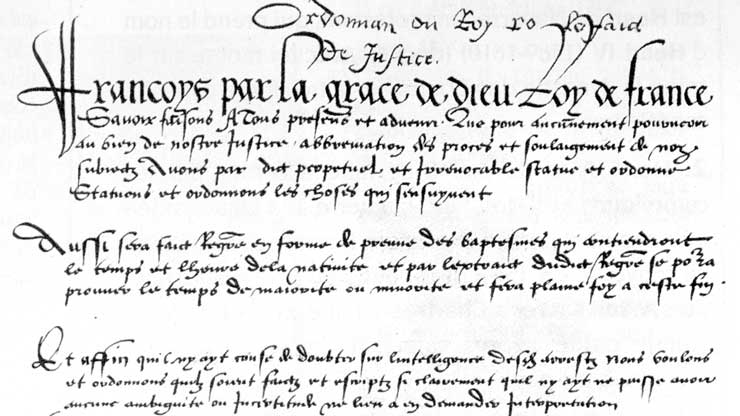 du Roy le faid
De Justice.
Francoys par la grace de dieu Roy de france
Scavoir faisons A Tous presens et advenir Que pour aucunement pourveoir
au bien de nostre Justice abbreviation des proces et soulaigement de noz
subiectz Avons par edict perpetuel et Irrevocable statue et ordonne
Statuons et ordonnons les choses qui sensuyvent
Aussi sera faict Regre en forme de preuve des baptesmes qui contiendront
le temps et lheure dela nativite et par lextraict dudict Regre se porra
prouver le temps de maiorite ou minorite et fera plaine foy a ceste fin
Et affin quil ny ayt cause de doubter sur lintelligence desdz arrestz Nous voulons
et ordonnons quilz soient faictz et escriptz si clairement quil ny ayt ne puisse avoir
aucune ambiguite ou Incertitude ne lieu a en demander Interpretation